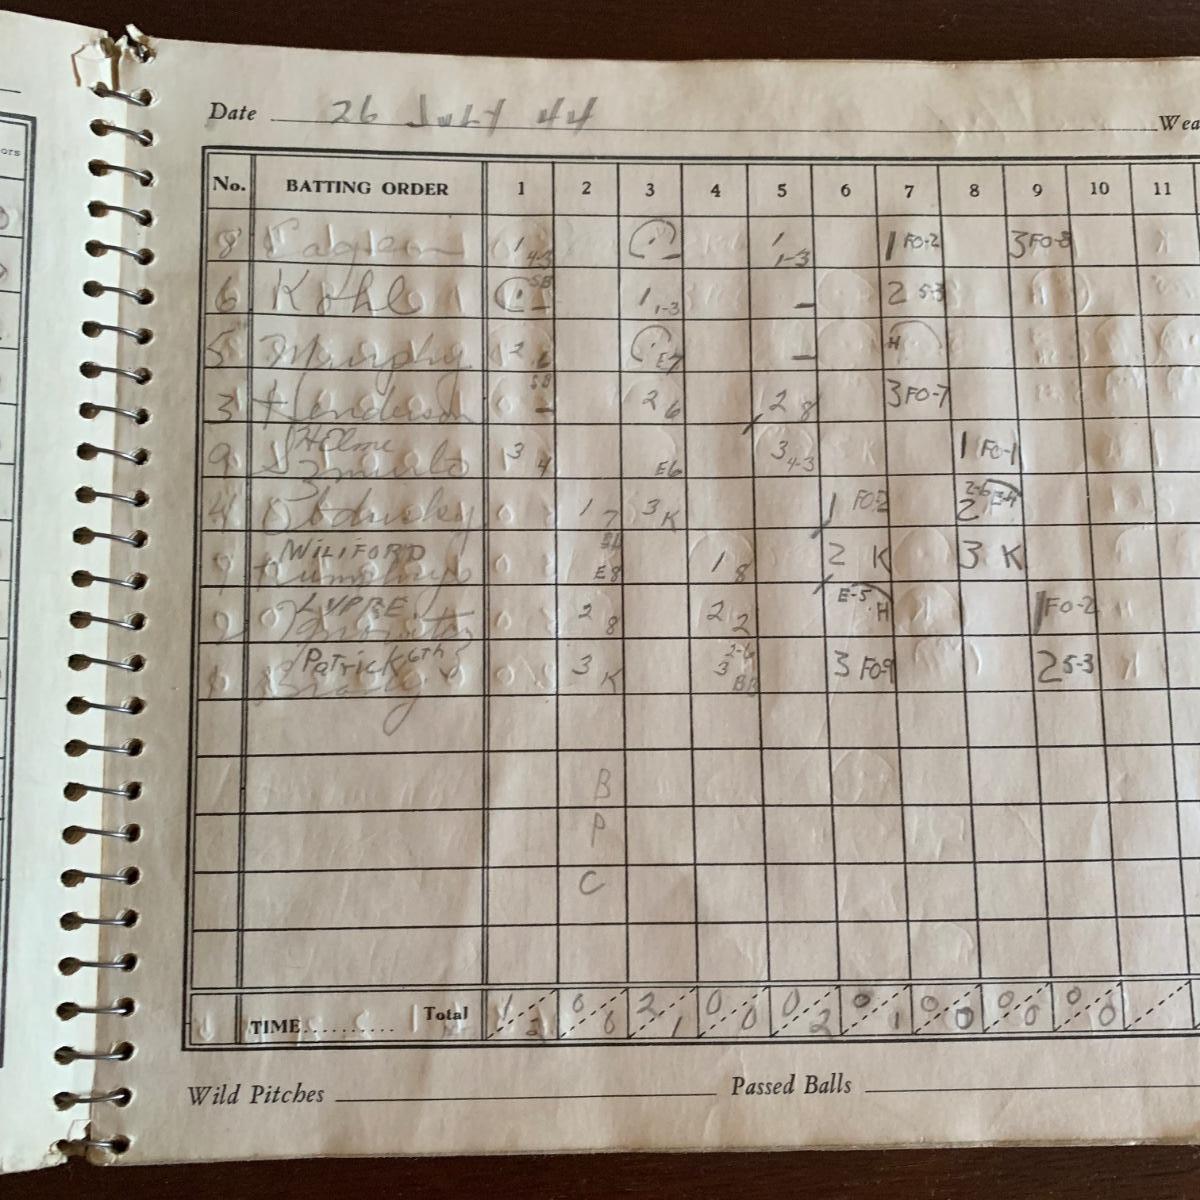 ors
Date 26 JULY 44 Wea
No. BATTING ORDER 1 2 3 4 5 6 7 8 9 10 11
8 1 4-3 1 1-3 1 FO-2 3 FO-8
6 Kohl SB 1 1-3 2 5-3
5 Murphy 2 6 E7 H
3 Henderson SB 2 6 2 8 3 FO-7
9 3 4 E6 3 4-3 1 FO-1
4 1 7 3 K 1 FO-2 2-6 2 E-4
WILIFORD E8 1 8 2 K 3 K
2 LYPRE 2 8 2 2 E-5 H 1 FO-2
1 Patrick 6th 3 K 2-6 3 BB 3 FO9 2 5-3
B
P
C
TIME.......... Total 1 2 0 0 2 1 0 0 0 2 0 1 0 0 0 0 0 0
Wild Pitches Passed Balls